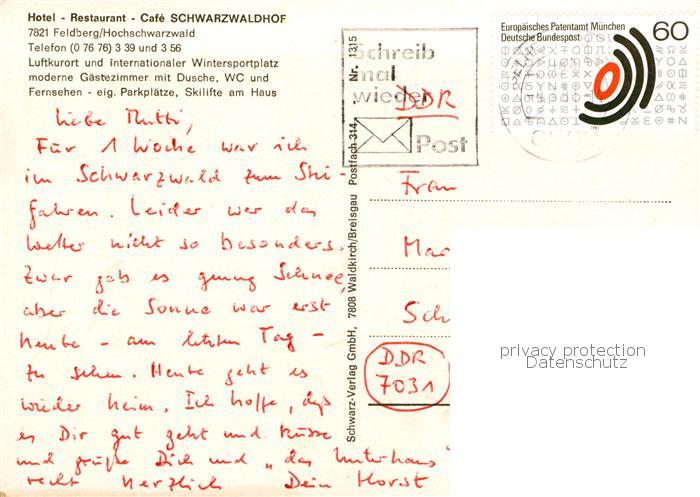 Hotel - Restaurant - Café SCHWARZWALDHOF
7821 Feldberg/Hochschwarzwald
Telefon (0 76 76) 3 39 und 3 56
Luftkurort und internationaler Wintersportplatz
moderne Gästezimmer mit Dusche, WC und
Fernsehen - eig. Parkplätze, Skilifte am Haus
Liebe Mutti,
Für 1 Woche war ich
im Schwarzwald zum Ski-
fahren. Leider war das
Wetter nicht so besonders.
Zwar gab es genug Schnee,
aber die Sonne war erst
heute - am letzten Tag -
zu sehen. Heute geht es
wieder heim. Ich hoffe, daß
es Dir gut geht und küsse
und grüße Dich und "das Unterhaus"
recht herzlich Dein Horst
Schwarz-Verlag GmbH, 7808 Waldkirch/Breisgau Postfach 314 Nr. 1315
Schreib
mal
wieder
Post
Europäisches Patentamt München
Deutsche Bundespost
60
1981
DDR
Frau
Mar
Sch
DDR
7031
privacy protection
Datenschutz